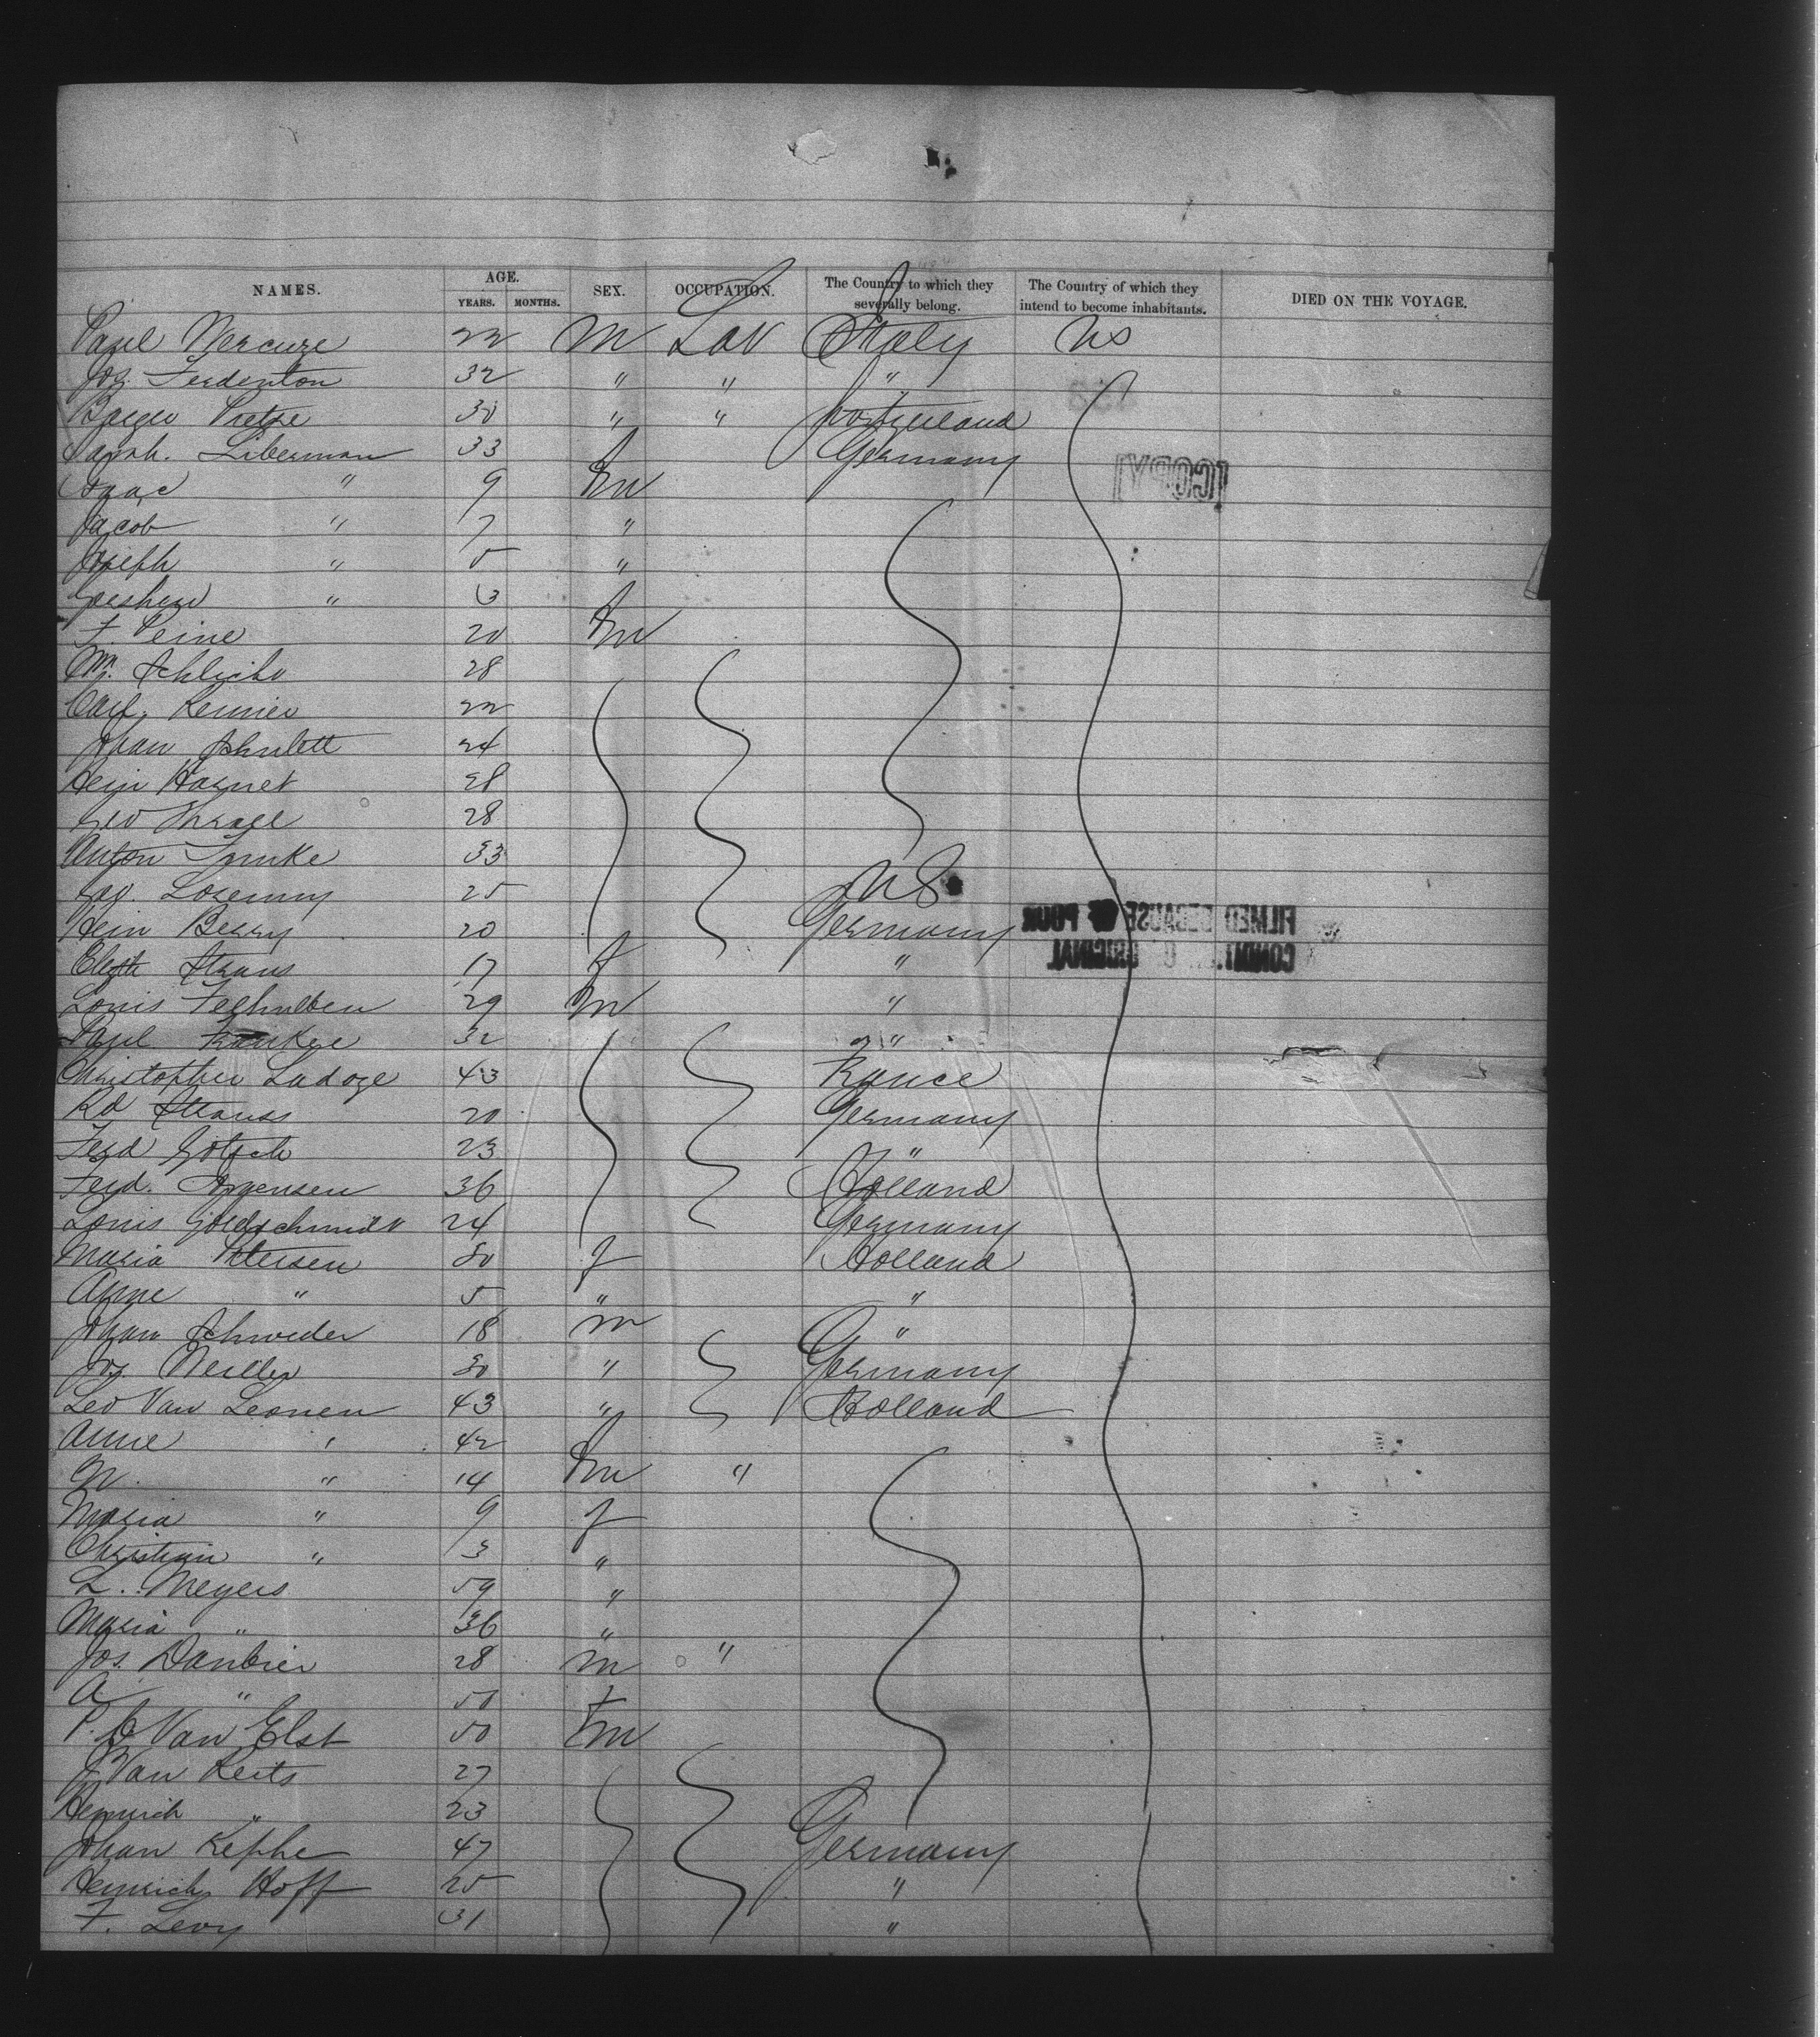 NAMES. AGE. YEARS. MONTHS. SEX. OCCUPATION. The Country to which they severally belong. The Country of which they intend to become inhabitants. DIED ON THE VOYAGE.
Paul Mercure 22 m Lab Italy US
Jos. Ferdenton 32 " " "
30 " " Switzerland
Sarah. Liberman 33 f Germany
Isaac " 9 m
Jacob " 7 "
Joseph " 5 "
" 3 f
F. Peine 20 m
Wm. 28
Carl. 22
Johan 24
28
Geo 28
Anton 33
25 US
Hein Berry 20 Germany
Elizth Straus 17 f "
Louis 29 m "
Paul 32 "
Christopher Ladoge 43 France
Rd Strauss 20 Germany
Ferd 23 "
Ferd. Jorgensen 36 Holland
Louis Goldschmidt 24 Germany
Maria Petersen 30 f Holland
Anne " 5 " "
Johan Schroeder 18 m "
Jos. 30 " Germany
Leo Van Leonen 43 " Holland
Anne " 42 f
" 14 m "
Maria " 9 f
Christian " 3 "
L. Meyers 59 "
Maria " 36 "
Jos. Danbier 28 m "
A " 50 f
P. Van Elst 50 m
J Van Keits 27
Heinrich " 23
Johan Kephe 47 Germany
Heinrich Hoff 25 "
F. Levy 31 "
[COPY]
FILMED BECAUSE OF POOR
ORIGINAL